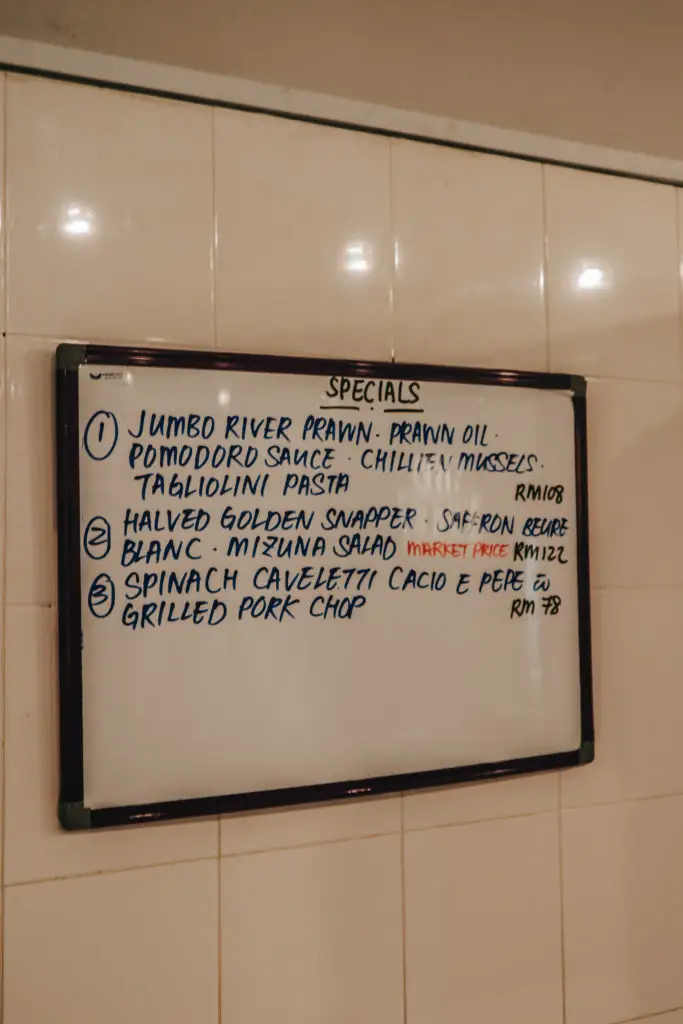 SPECIALS
① JUMBO RIVER PRAWN · PRAWN OIL ·
POMODORO SAUCE · CHILLIEN MUSSELS ·
TAGLIOLINI PASTA RM108
② HALVED GOLDEN SNAPPER · SAFFRON BEURE
BLANC · MIZUNA SALAD MARKET PRICE RM122
③ SPINACH CAVELETTI CACIO E PEPE
GRILLED PORK CHOP RM 78